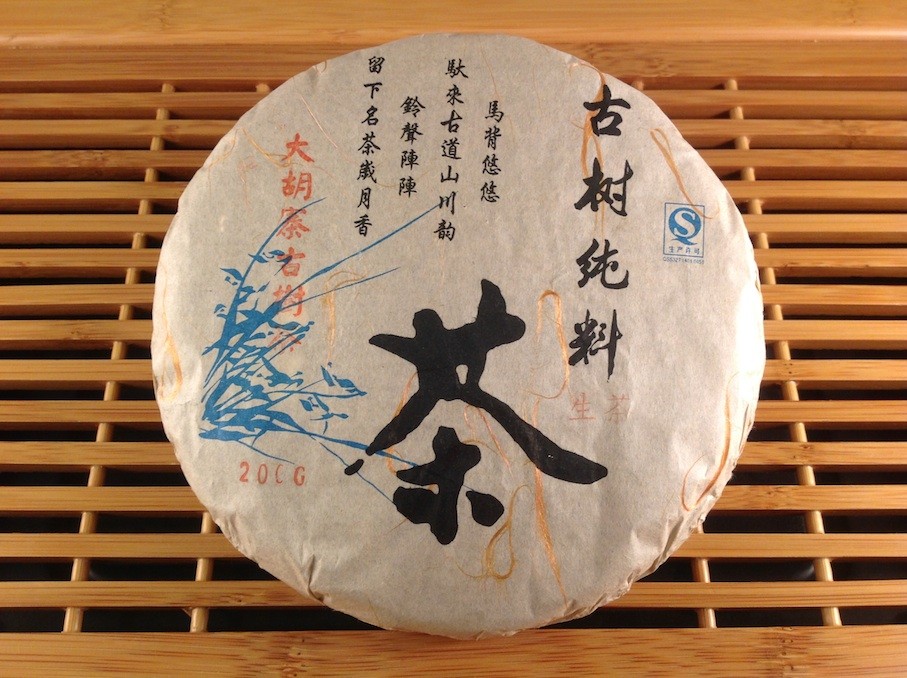 古树纯料
馬背悠悠
馱來古道山川韵
鈴聲陣陣
留下名茶歲月香
茶
大胡寨古樹茶
生茶
200G
生产许可